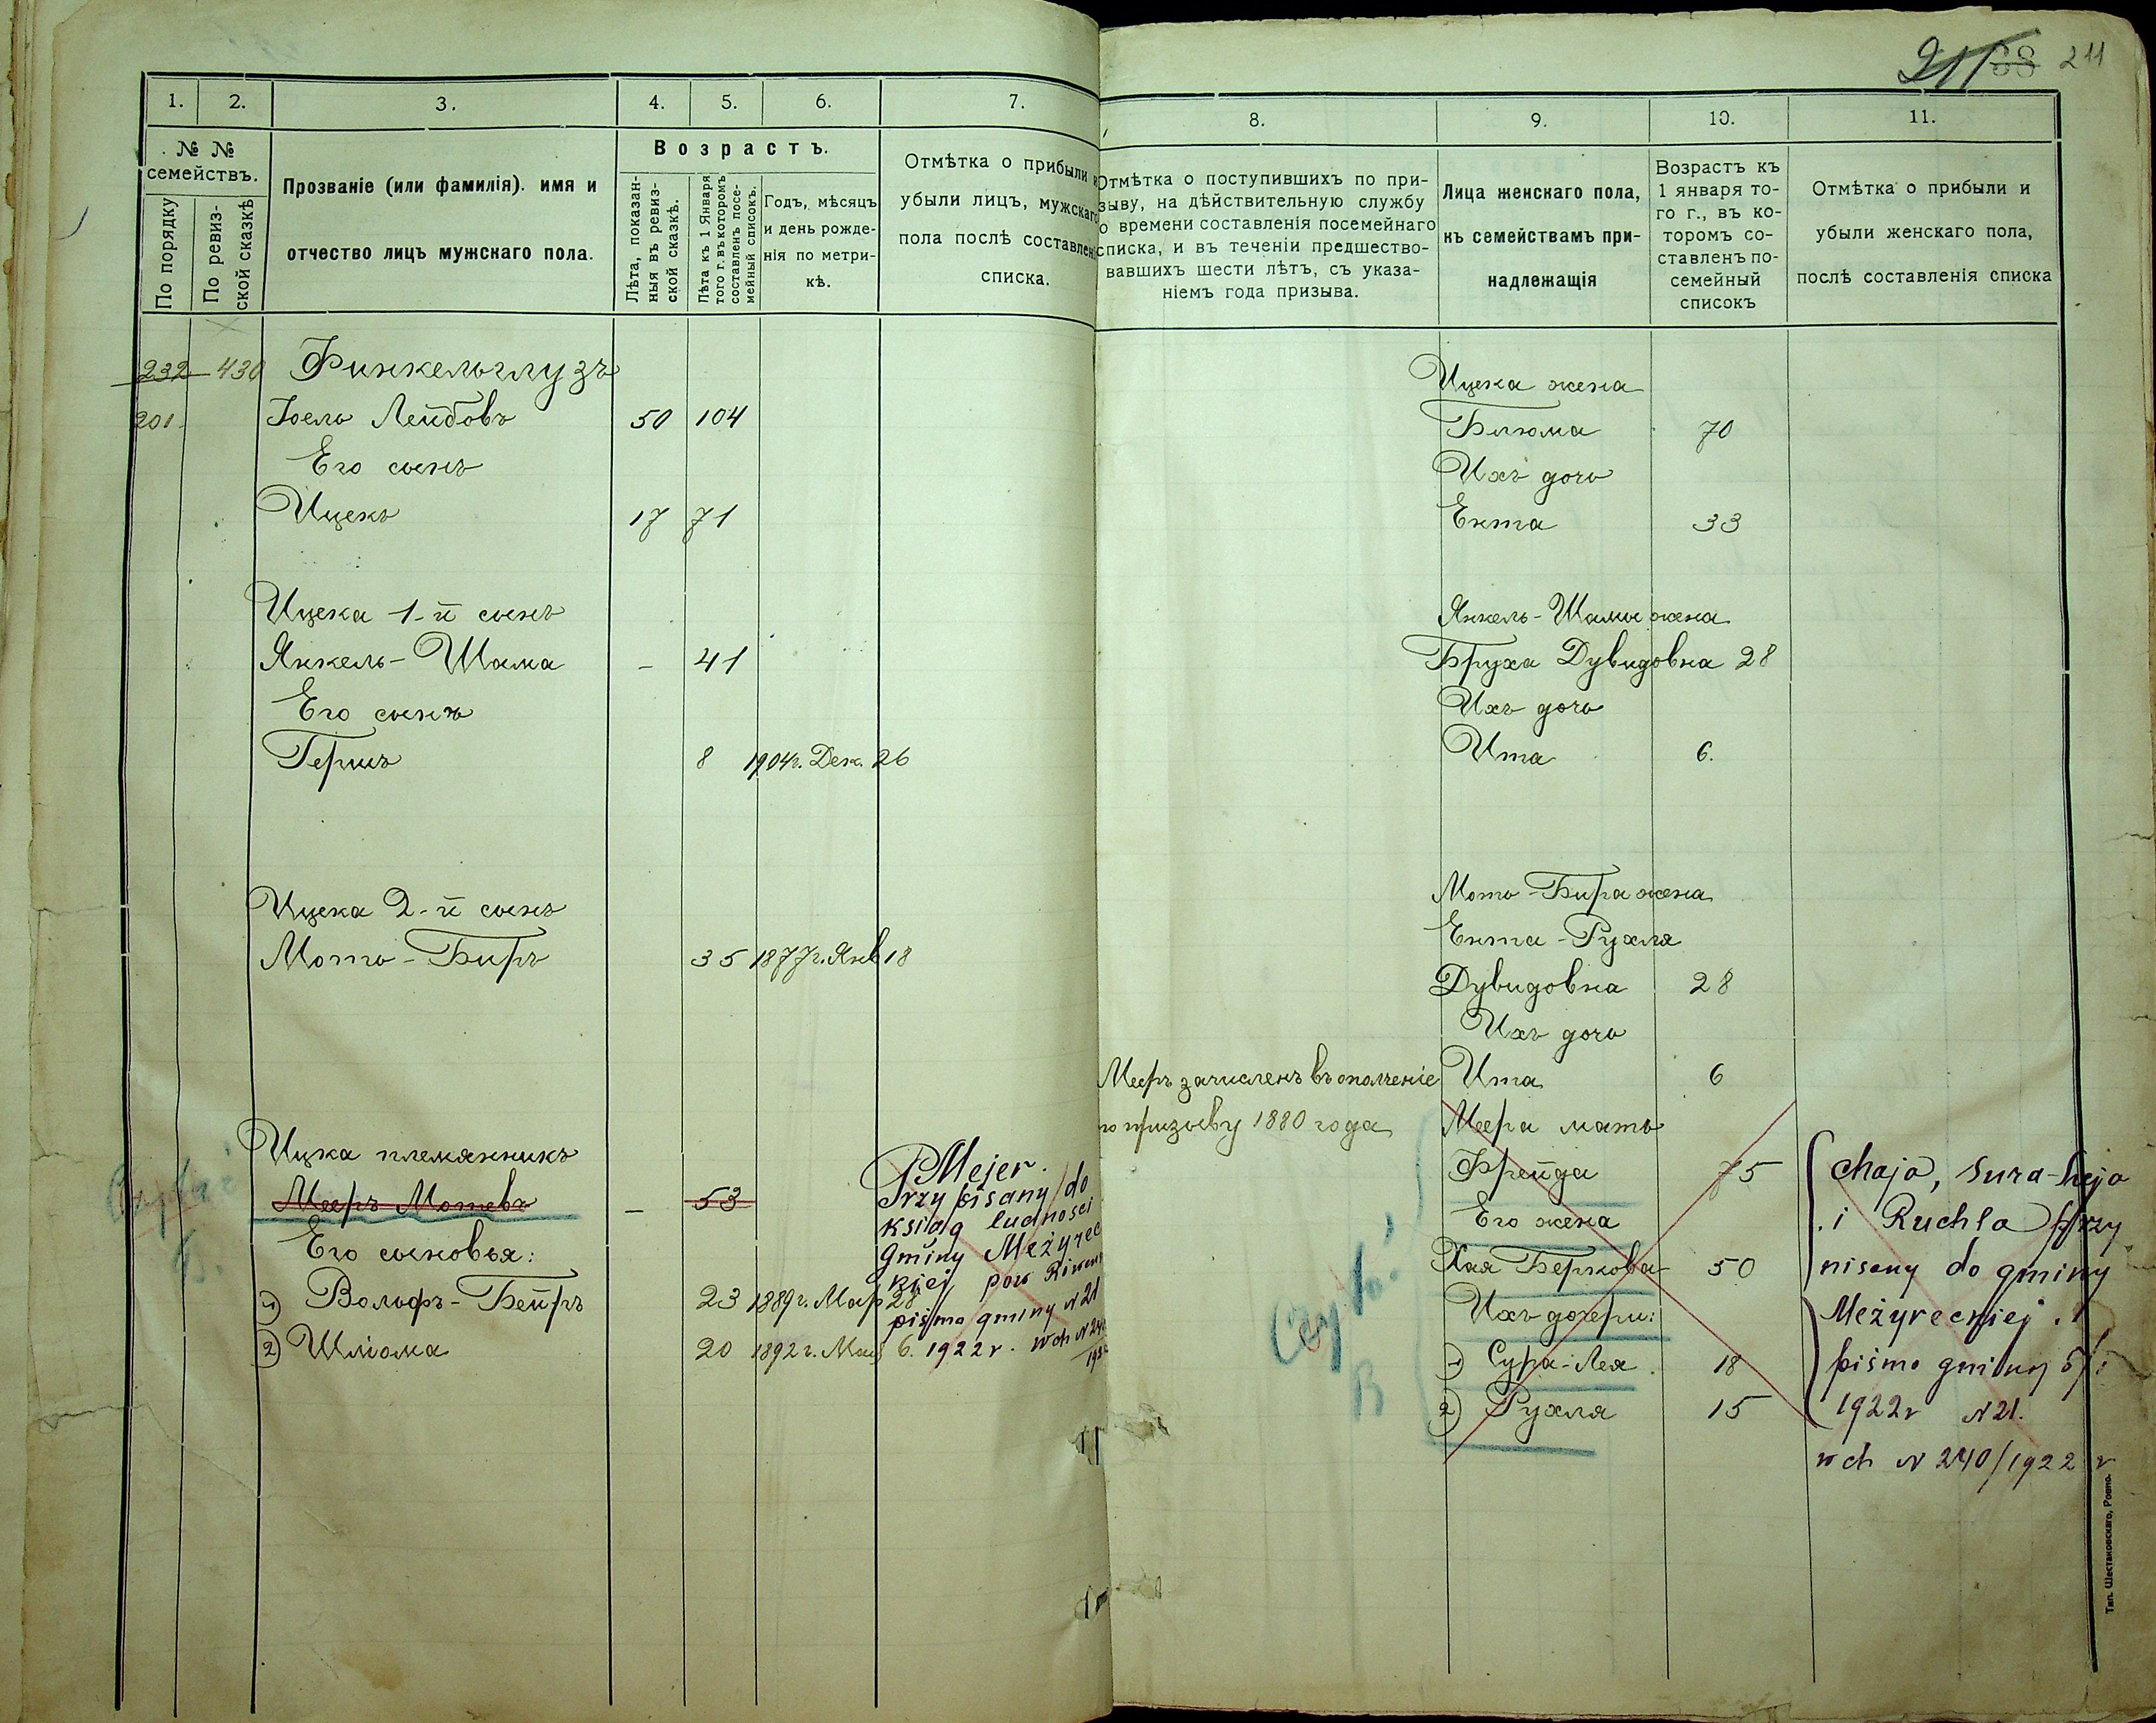 211 68 211
1. 2. 3. 4. 5. 6. 7.
№ №
семействъ.
По порядку
По ревиз-
ской сказкѣ
Прозваніе (или фамилія). имя и
отчество лицъ мужскаго пола.
Возрастъ.
Лѣта, показан-
ныя въ ревиз-
ской сказкѣ.
Лѣта къ 1 Января
того г. въ которомъ
составленъ посе-
мейный списокъ.
Годъ, мѣсяцъ
и день рожде-
нія по метри-
кѣ.
Отмѣтка о прибыли и
убыли лицъ, мужскаго
пола послѣ составленія
списка.
232 430 Финкельглузъ
201 Іоель Лейбовъ 50 104
Его сынъ
Ицекъ 17 71
Ицека 1-й сынъ
Янкель-Шама - 41
Его сынъ
Гершъ 8 1904г. Дек. 26
Ицека 2-й сынъ
Мотьо-Биръ 35 1877г. Янв 18
Ицка племянникъ
Мееръ Мотевъ - 53
Его сыновья:
1) Вольфъ-Бейръ 23 1889г. Мар 28
2) Шліома 20 1892г. Мая 6.
Mejer.
Przypisany do
ksiąg ludności
Gminy Meżyrec
kiej pow Riwen
pismo gminy N 21
1922 r. wch N 240
8. 9. 10. 11.
Отмѣтка о поступившихъ по при-
зыву, на дѣйствительную службу
о времени составленія посемейнаго
списка, и въ теченіи предшество-
вавшихъ шести лѣтъ, съ указа-
ніемъ года призыва.
Лица женскаго пола,
къ семействамъ при-
надлежащія
Возрастъ къ
1 января то-
го г., въ ко-
торомъ со-
ставленъ по-
семейный
списокъ
Отмѣтка о прибыли и
убыли женскаго пола,
послѣ составленія списка
Ицека жена
Блюма 70
Ихъ дочь
Ента 33
Янкель-Шамы жена
Бруха Дувидовна 28
Ихъ дочь
Ита 6.
Мотьо-Бира жена
Ента-Рухля
Дувидовна 28
Ихъ дочь
Ита 6
Мееръ зачисленъ въ ополченіе
по призыву 1880 года
Меера мать
Фрейда 75
Его жена
Хая Беркова 50
Ихъ дочери:
1) Сура-Лея 18
2) Рухля 15
Chaja, Sura-Leja
i Ruchla przy
pisany do gminy
Meżyreckiej.
pismo gminy 5/i
1922r N 21.
wch N 240/1922 r
Тип. Шестаковскаго, Ровно.